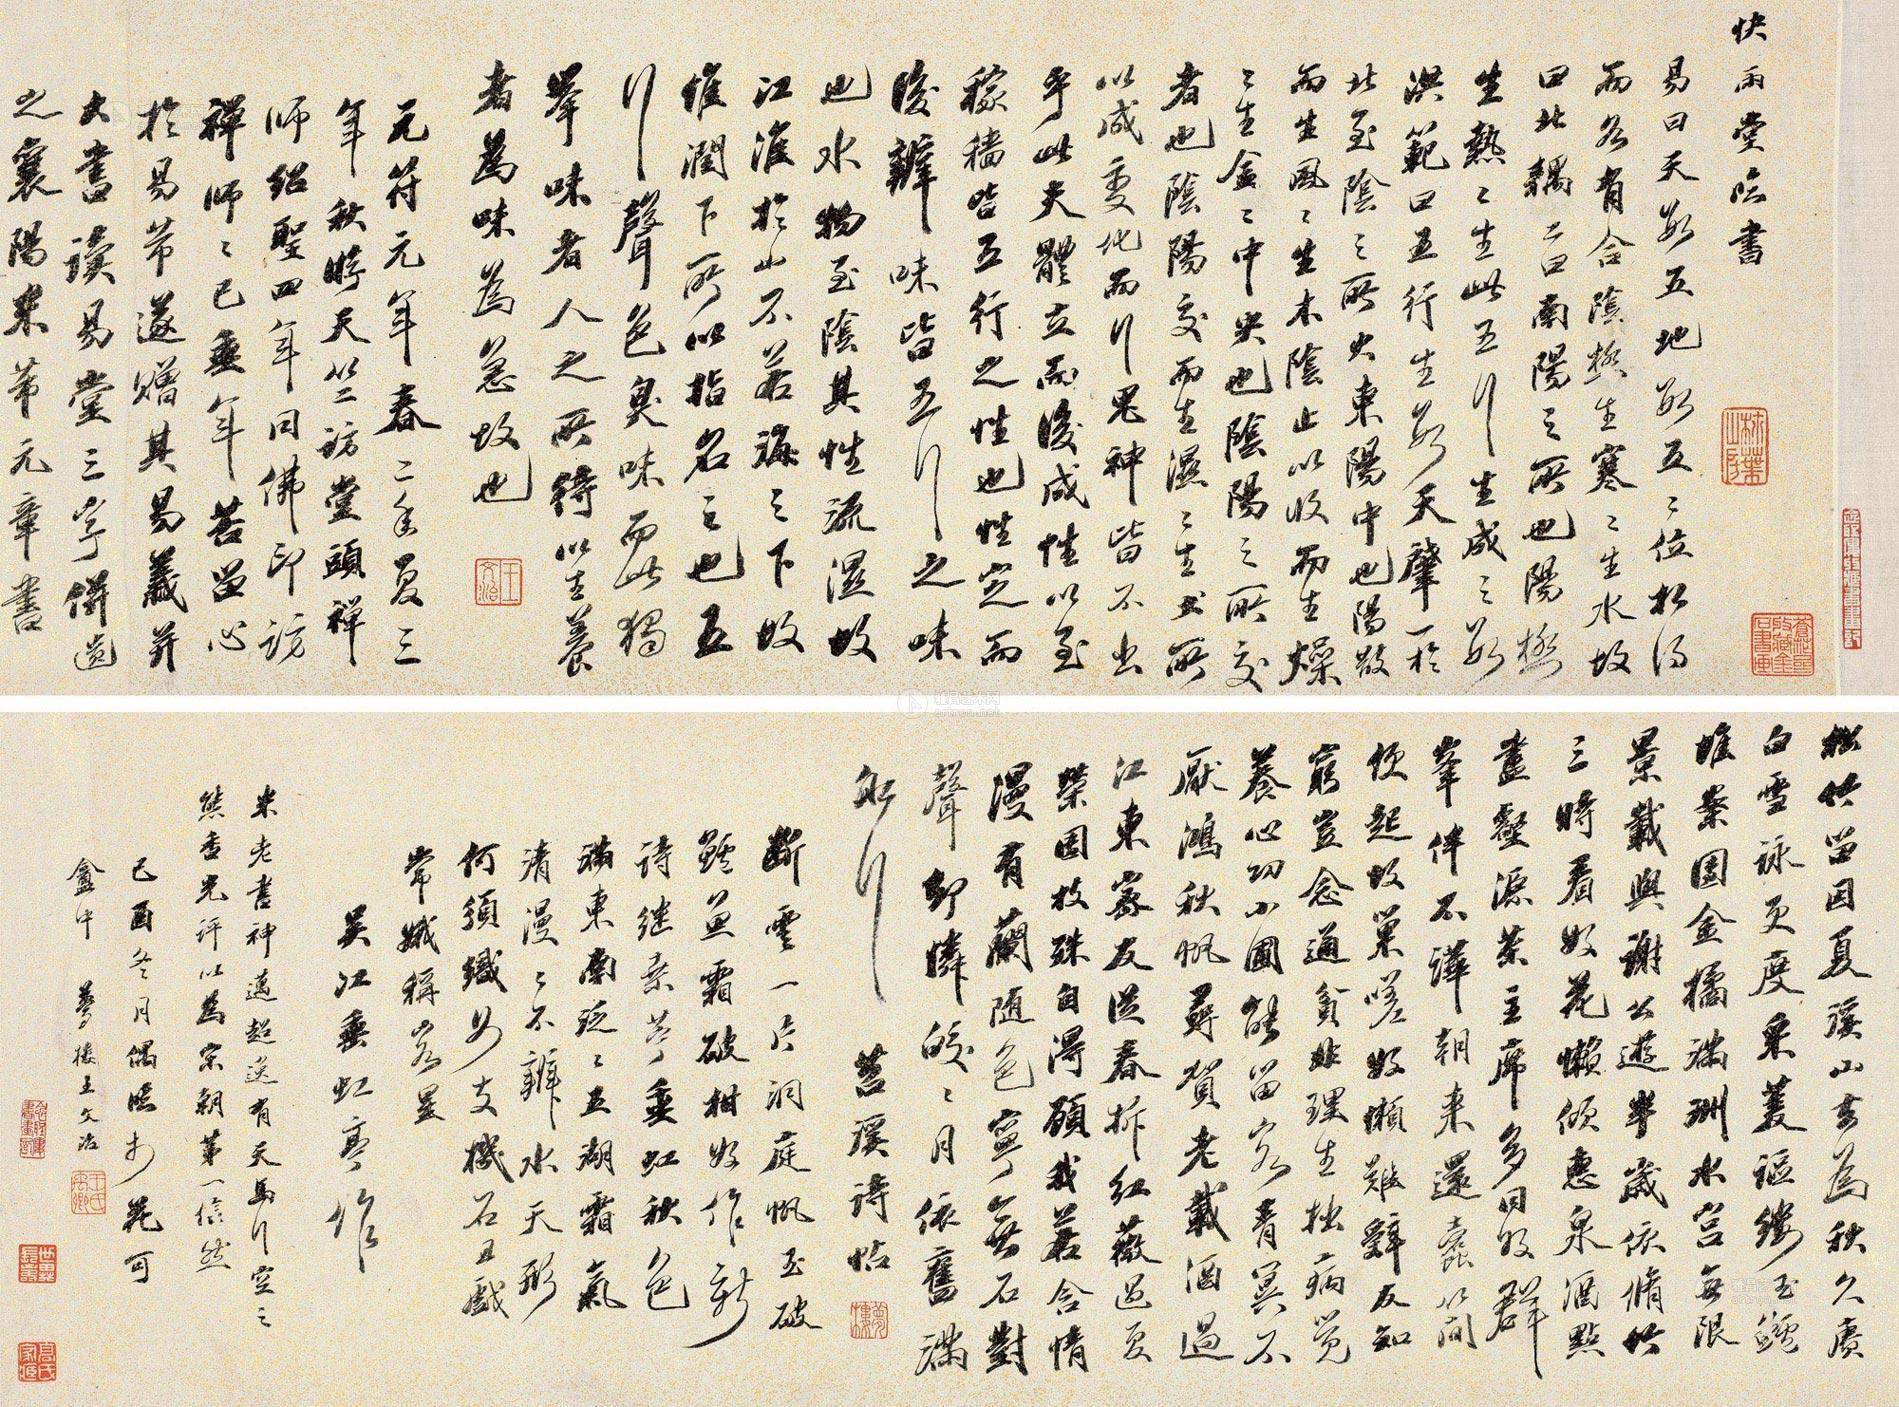 快雨堂臨書
易曰天數五地數五〻位相得
而各有合陰極生寒〻生水故
曰北耦二曰南陽之所也陽極
生熱〻生此五行生成之數
洪範曰五行生數天肇一於
北至陰之所火東陽中也陽散
而生風〻生木陰止以收而生燥
〻生金〻中央也陰陽之所交
者也陰陽交而生濕〻生土所
以成變化而行鬼神皆不出
乎此夫體立而後成性以至
稼穡皆五行之性也性定而
後辨味皆五行之味
也水物至陰其性流濕故
江淮於山不若海之下故
惟潤下所以指名之也五
行聲色臭味而此獨
舉味者人之所待以生養
者為味為急故也
元符元年春二年夏三
年秋時天竺訪堂頭禪
師紹聖四年同佛印訪
禪師〻已垂年苦留心
於易芾遂贈其易義并
大書讀易堂三字併圖
之襄陽米芾元章書
松竹留因夏溪山去為秋久賡
白雪詠更度采菱謳縷玉鱸
堆案團金橘滿洲水宮無限
景載與謝公遊半歲依脩竹
三時看好花懶傾惠泉酒點
盡壑源茶主席多同好群
峯伴不譁朝來還蠹簡
便起故巢嗟好懶難辭友知
窮豈念通貧非理生拙病覺
養心功小圃能留客青冥不
厭鴻秋帆尋賀老載酒過
江東家友從春拆紅薇過夏
榮團枝殊自得顧我若含情
漫有蘭隨色寧無石對
聲却憐皎〻月依舊滿
船行 苕溪詩帖
斷雲一片洞庭帆玉破
鱸魚霜破柑好作新
詩繼桑苧垂虹秋色
滿東南泛〻五湖霜氣
清漫〻不辨水天形
何須織女支機石且戲
常娥稱客星
吳江垂虹亭作
米老書神邁超逸有天馬行空之
態香光評以為宋朝第一信然
己酉冬月偶臨於花可
盦中 夢樓王文治